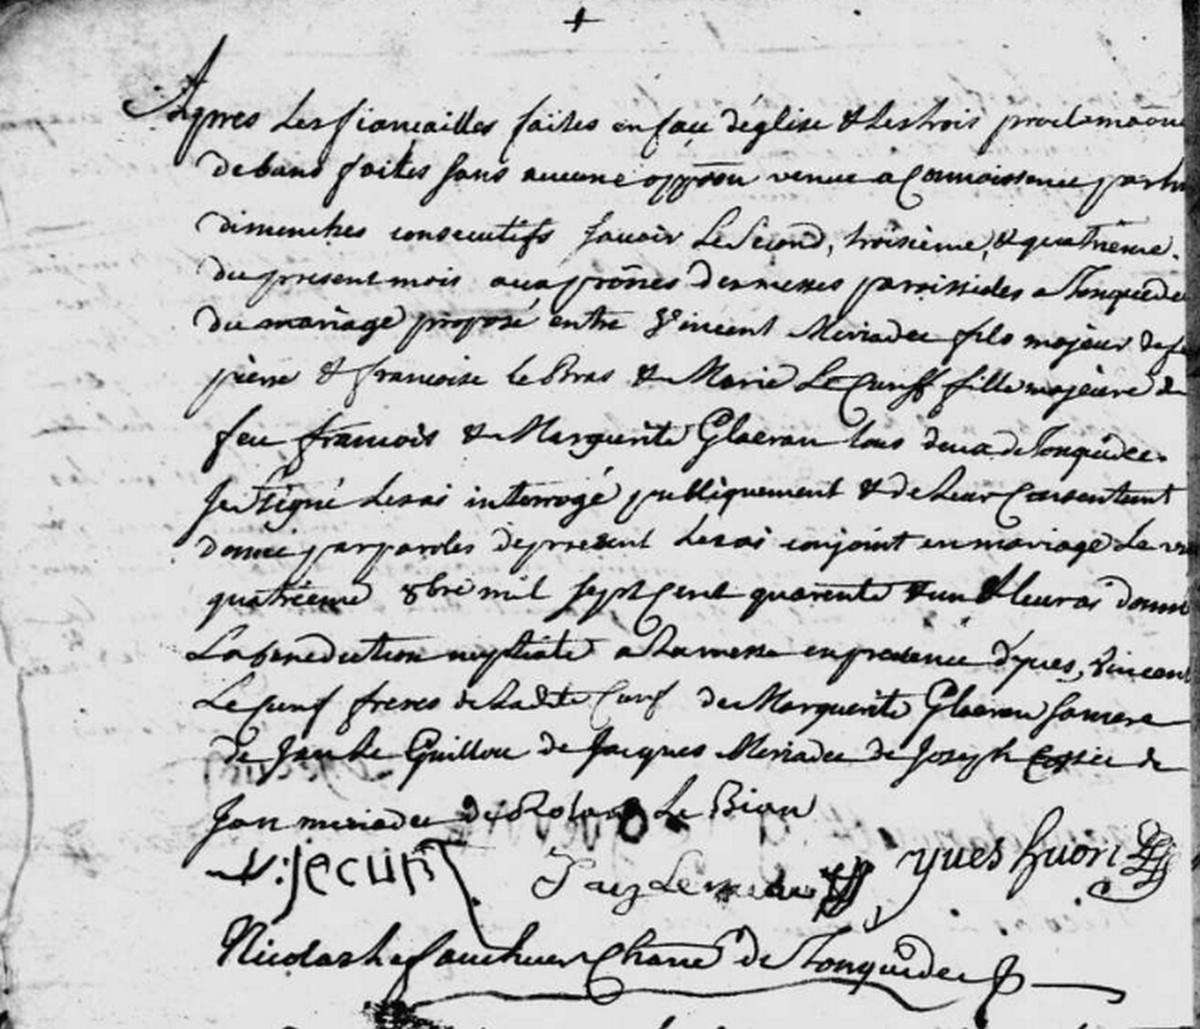 Apres Les fiancailles faites en face d'église & les trois proclamaõns
de bans faites sans aucune oppõon venue a Connoissence par trois
dimenches consecutifs savoir Le Second, troisième, & quatrième
du present mois aux prônes des messes paroissiales a Tonquedec
du mariage proposé entre Vincent Meriadec fils majeur de feu
pierre & francoise le Bras & Marie Le Cunff fille majeure de
feu francois & Marguerite Glaeran tous deux de Tonquedec
Je Sigñé Les ai interrogé publiquement & de Leur Consentement
donné par paroles de present Les ai conjoint en mariage Le vingt
quatrieme 8bre mil Sept Cent quarente & un & leur ai donné
La benediction nuptiale a La messe en presence d'yves, Vincent
Le Cunf freres de Ladite Cunf de Marguerite Glaeran Sa mere
de Jan Le Guillou de Jacques Meriadec de Joseph de
Jan meriadec de Roland Le Bian
V: Jecunf Yves huon
Nicolas Le fauchuer de Tonquédec